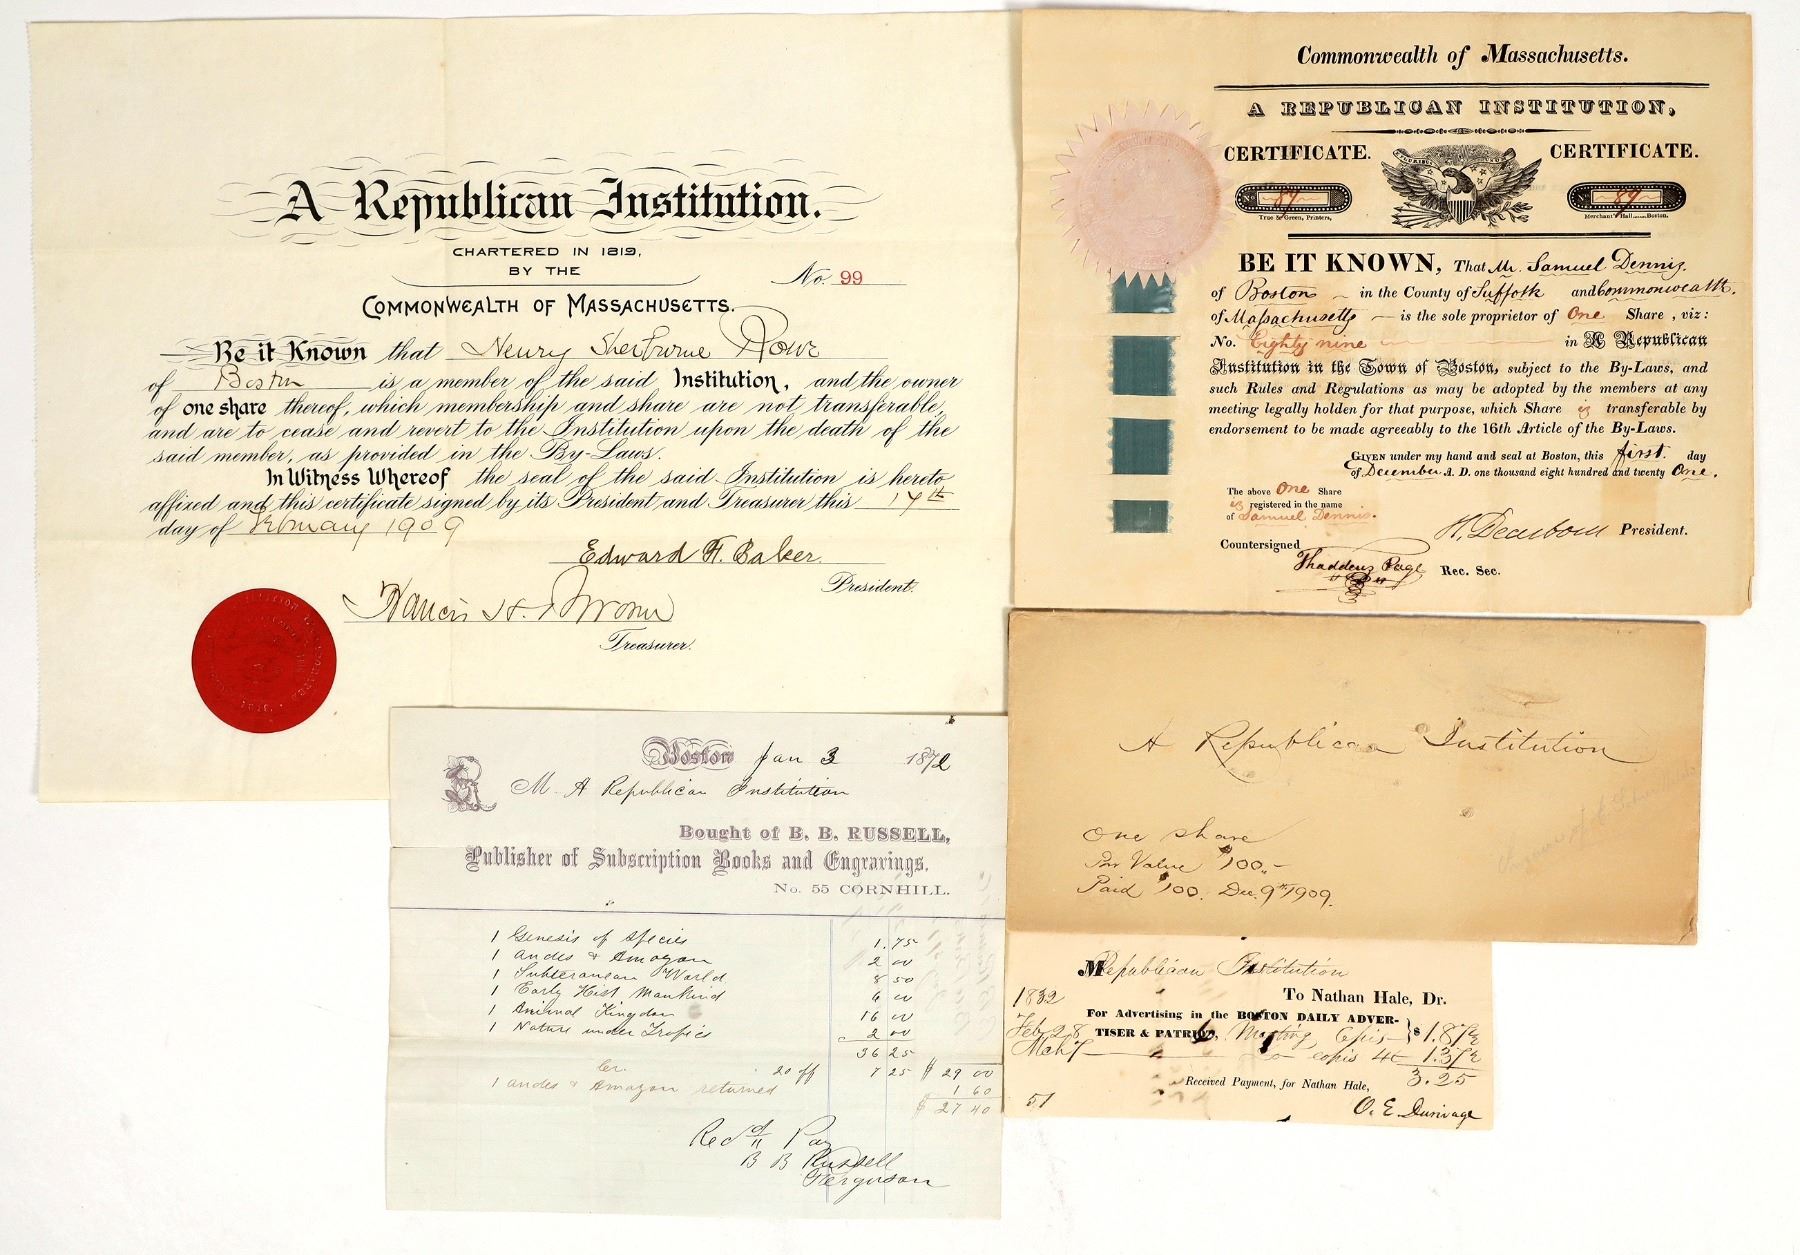 A Republican Institution.
CHARTERED IN 1819,
BY THE
No. 99
COMMONWEALTH OF MASSACHUSETTS.
Be it Known that Henry Sherburne Rowe
of Boston is a member of the said Institution, and the owner
of one share thereof, which membership and share are not transferable,
and are to cease and revert to the Institution upon the death of the
said member, as provided in the By-Laws.
In Witness Whereof the seal of the said Institution is hereto
affixed and this certificate signed by its President and Treasurer this 17th
day of February 1909
Edward H. Baker.
President.
Francis H. Brown
Treasurer.
Commonwealth of Massachusetts.
A REPUBLICAN INSTITUTION,
CERTIFICATE. CERTIFICATE.
No 89 No 89
True & Green, Printers, Merchants Hall Boston.
BE IT KNOWN, That Mr. Samuel Dennis.
of Boston in the County of Suffolk and Commonwealth.
of Massachusetts is the sole proprietor of One Share, viz:
No. Eighty nine in A Republican
Institution in the Town of Boston, subject to the By-Laws, and
such Rules and Regulations as may be adopted by the members at any
meeting legally holden for that purpose, which Share is transferable by
endorsement to be made agreeably to the 16th Article of the By-Laws.
GIVEN under my hand and seal at Boston, this first. day
of December A. D. one thousand eight hundred and twenty One.
The above One Share
is registered in the name
of Samuel Dennis.
H. Dearborn President.
Countersigned
Thaddeus Page Rec. Sec.
Boston Jan 3 1872
M. A Republican Institution
Bought of B. B. RUSSELL,
Publisher of Subscription Books and Engravings.
No. 55 CORNHILL.
1 Genesis of Species 1.75
1 Andes & Amazon 2 00
1 Subteranean World 8 50
1 Early Hist Mankind 6 00
1 Animal Kingdon 16 00
1 Nature under Tropics 2 00
36 25
Cr. 20 off 7 25 $ 29 00
1 Andes & Amazon returned 1 60
$ 27 40
Recd Pay
B B Russell
Ferguson
A Republican Institution
One share
Par Value $100.-
Paid $100. Dec. 9th 1909.
M Republican Institution
To Nathan Hale, Dr.
1832
For Advertising in the BOSTON DAILY ADVER-
TISER & PATRIOT,
Feb 28 Meeting 6 $ 1.87½
Mch 7 4t 1.37½
3.25
Received Payment, for Nathan Hale,
51
O. E. Durivage